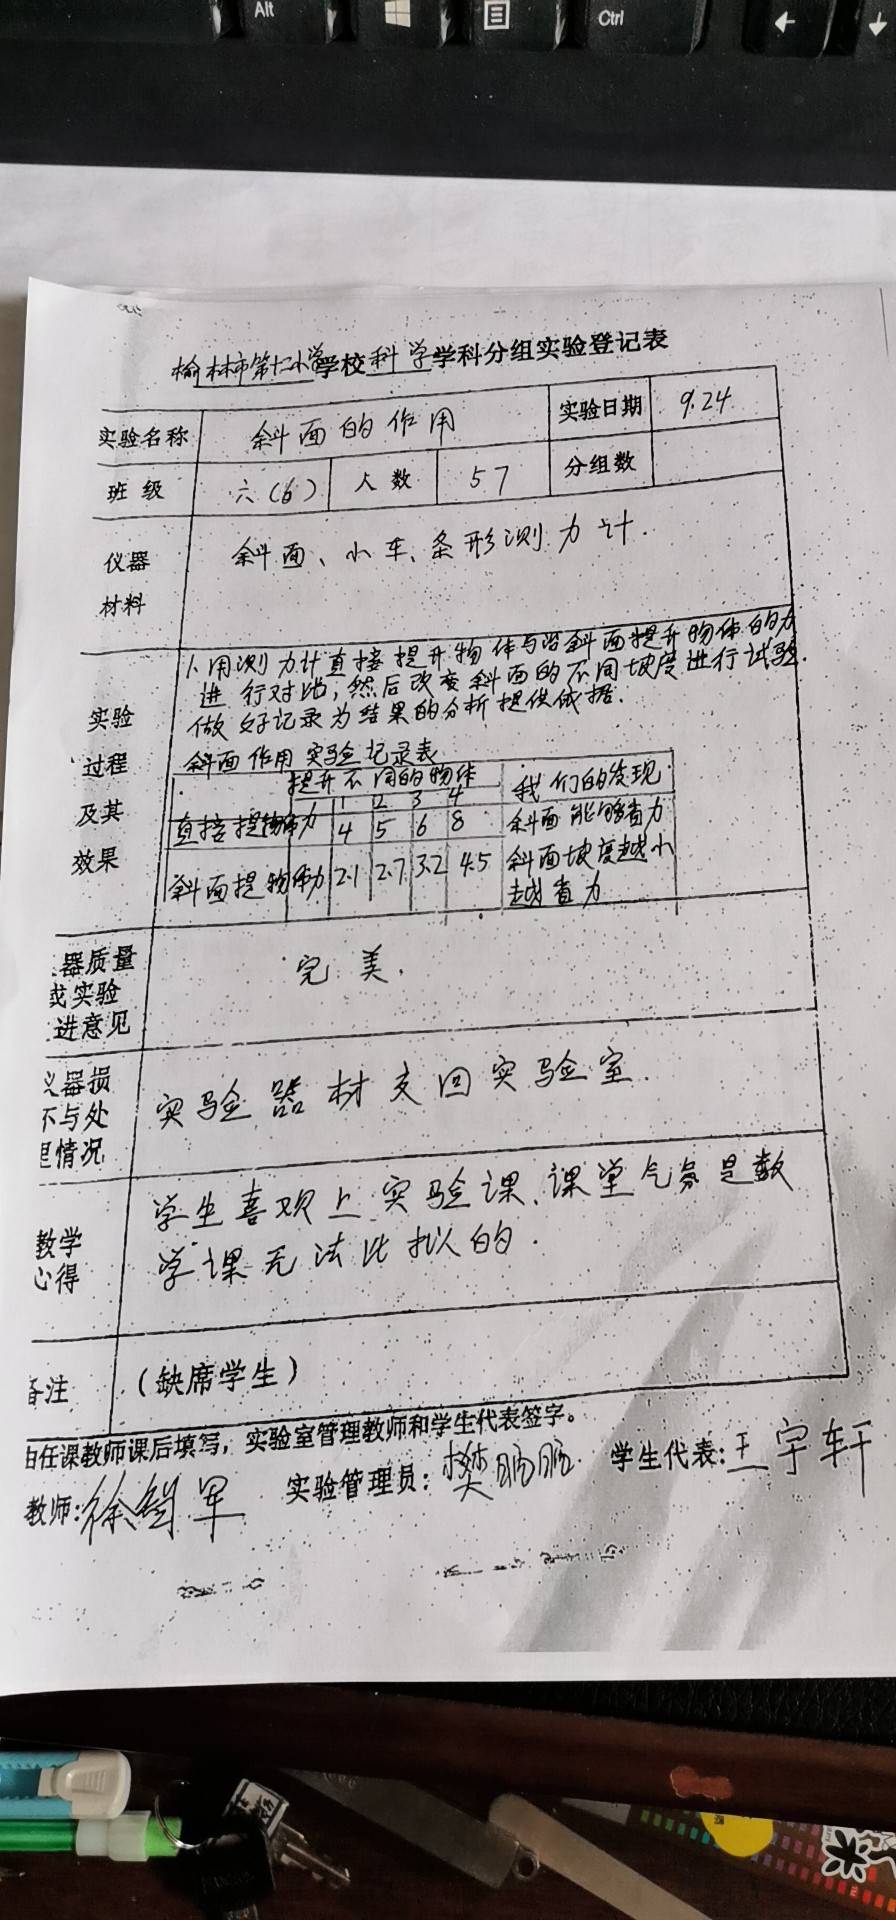 Alt
Ctrl
榆林市第十二小学学校科学学科分组实验登记表
实验名称 斜面的作用 实验日期 9.24
班级 六(6) 人数 57 分组数
仪器 斜面、小车、条形测力计.
材料
1、用测力计直接提升物体与沿斜面提升物体的力
进行对比;然后改变斜面的不同坡度进行试验.
做好记录为结果的分析提供依据.
实验
过程
及其
效果
斜面作用实验记录表
提升不同的物体 我们的发现
1 2 3 4
直接提物体力 4 5 6 8 斜面能够省力
斜面提物体力 2.1 2.7 3.2 4.5 斜面坡度越小
越省力
器质量
或实验 完美.
进意见
仪器损
坏与处 实验器材交回实验室.
理情况
教学 学生喜欢上实验课、课堂气氛是数
心得 学课无法比拟的.
备注 (缺席学生)
由任课教师课后填写,实验室管理教师和学生代表签字。
教师: 实验管理员:樊鹏鹏 学生代表:王宇轩